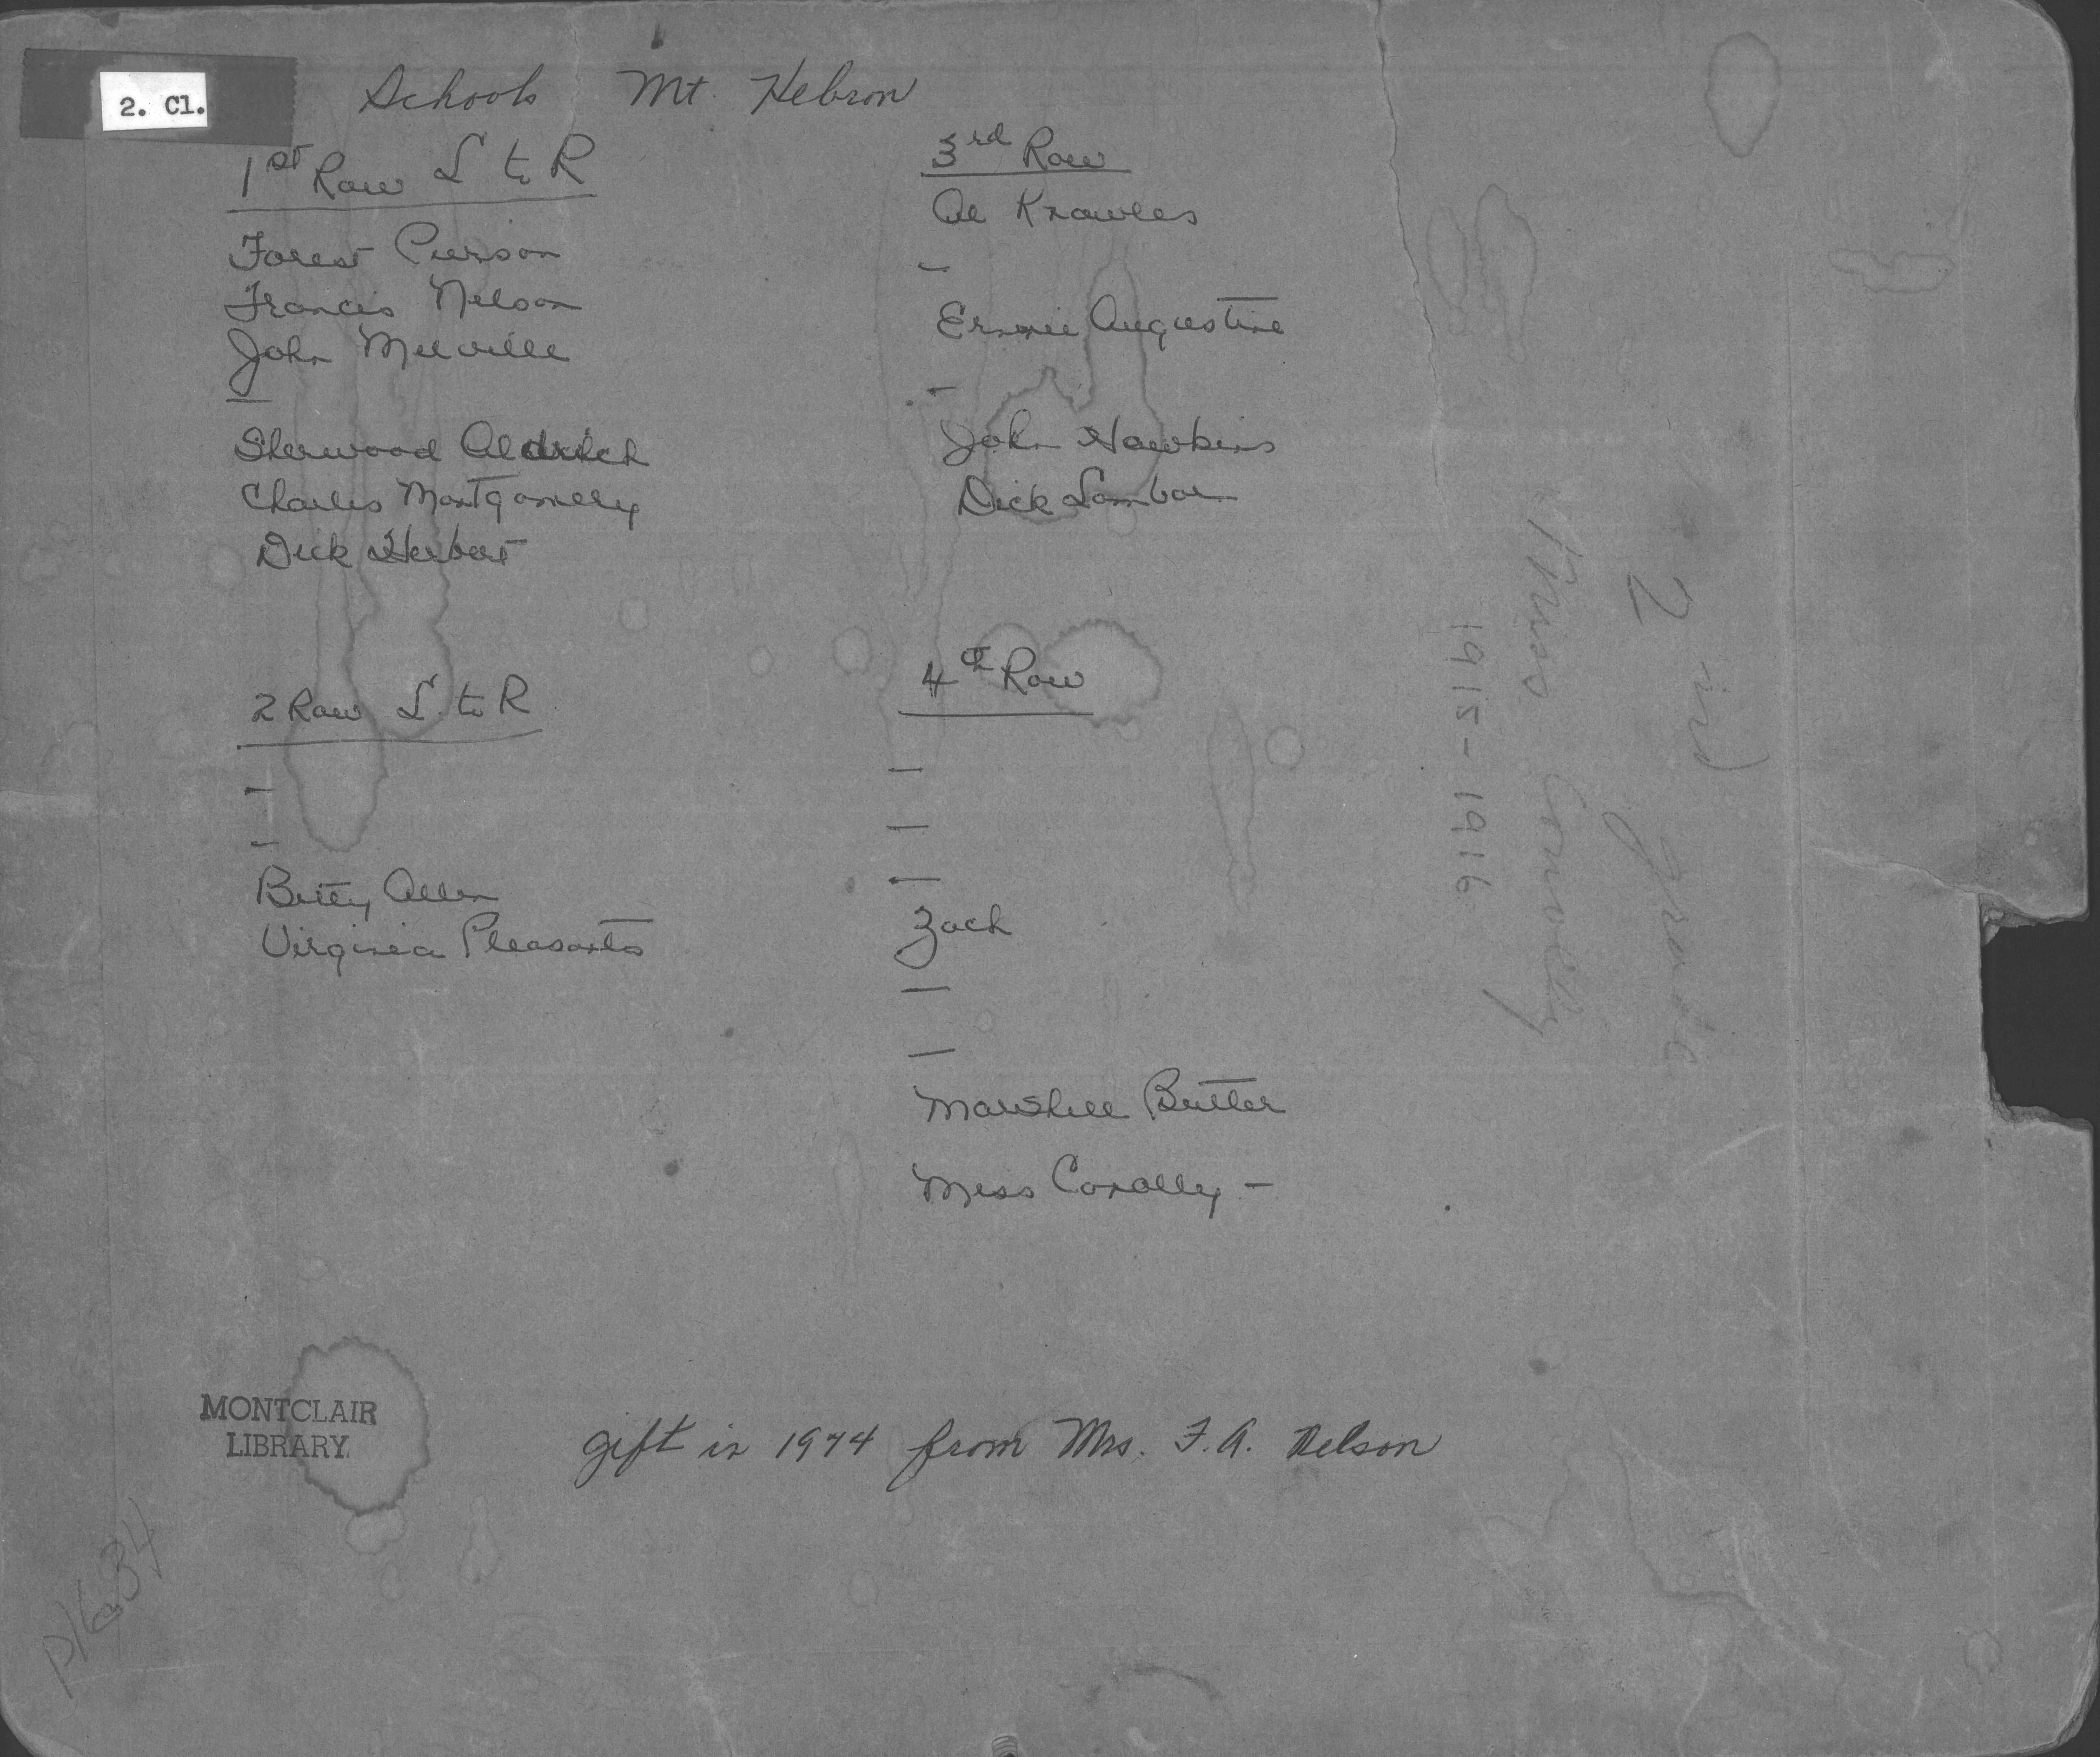 2. Cl.
Schools Mt. Hebron
1st Row L to R
Forest Pierson
Francis Nelson
John Melville
—
Sherwood Aldrich
Charles Montgomery
Dick Herbert
2 Row L. to R
-
-
Betty Allen
Virginia Pleasants
3rd Row
Al Knowles
-
Ernie Augustine
-
John Hawkins
Dick Lambar
4th Row
—
—
—
Zach
—
—
Marshall Butler
Miss Conolly -
2nd grade
Miss Conolly
1915-1916
MONTCLAIR
LIBRARY
gift in 1974 from Mrs. F.A. Nelson